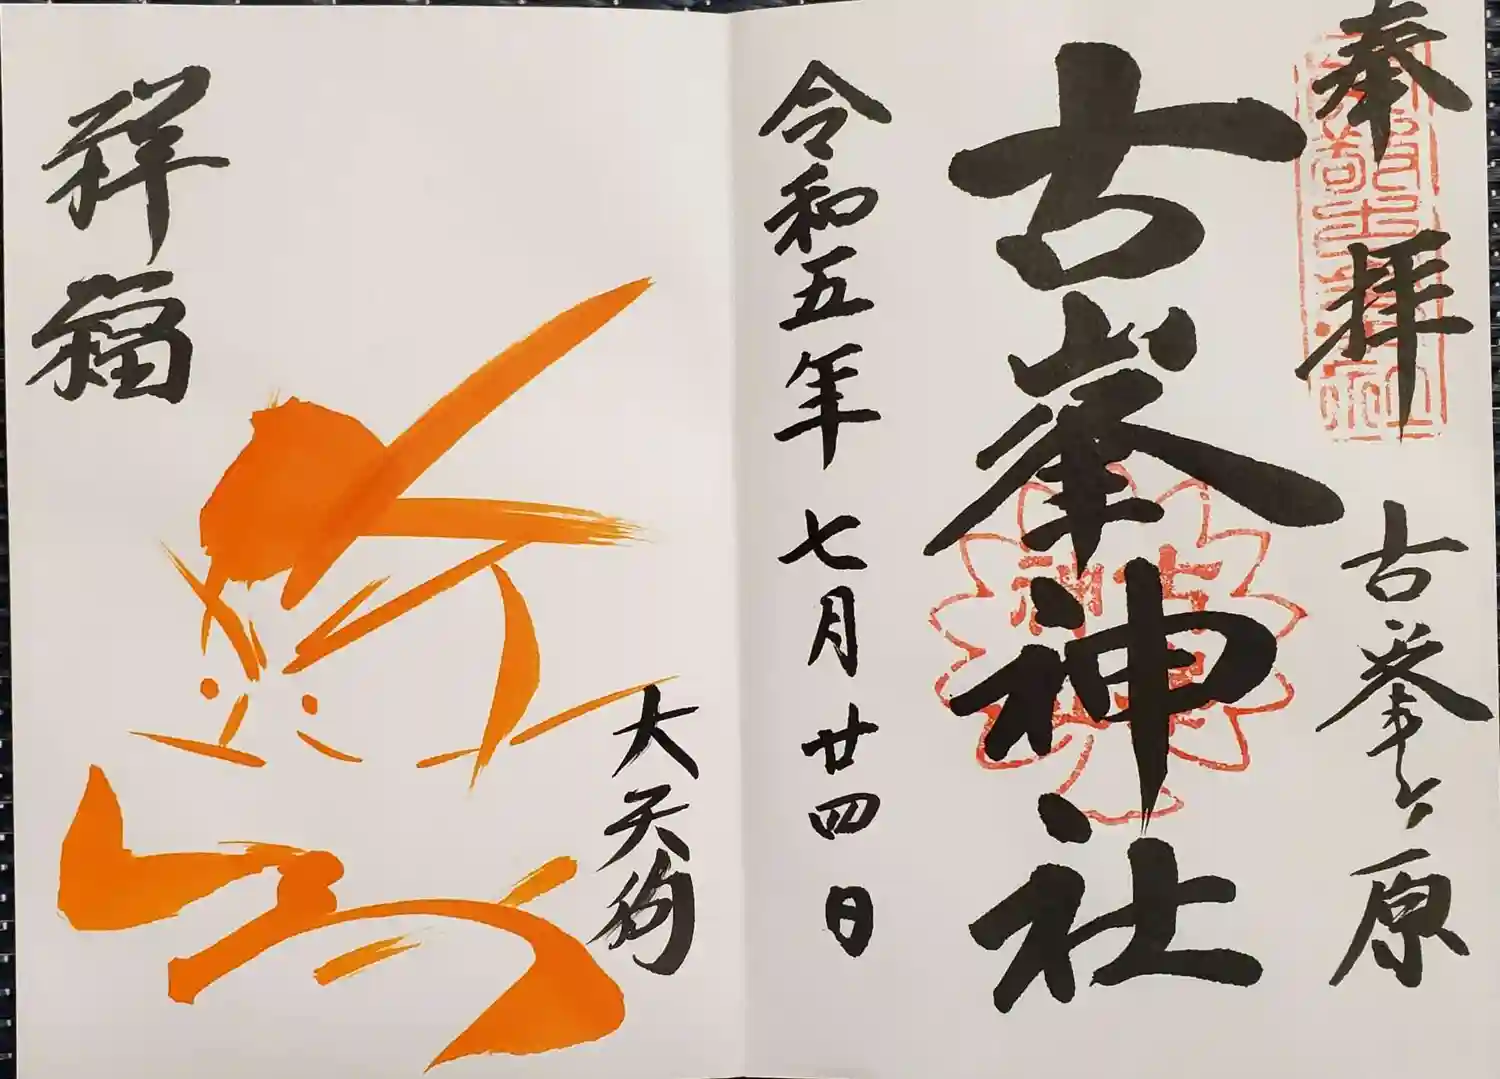 奉拝
古峯ヶ原
古峯神社
令和五年七月廿四日
大天狗
祥福